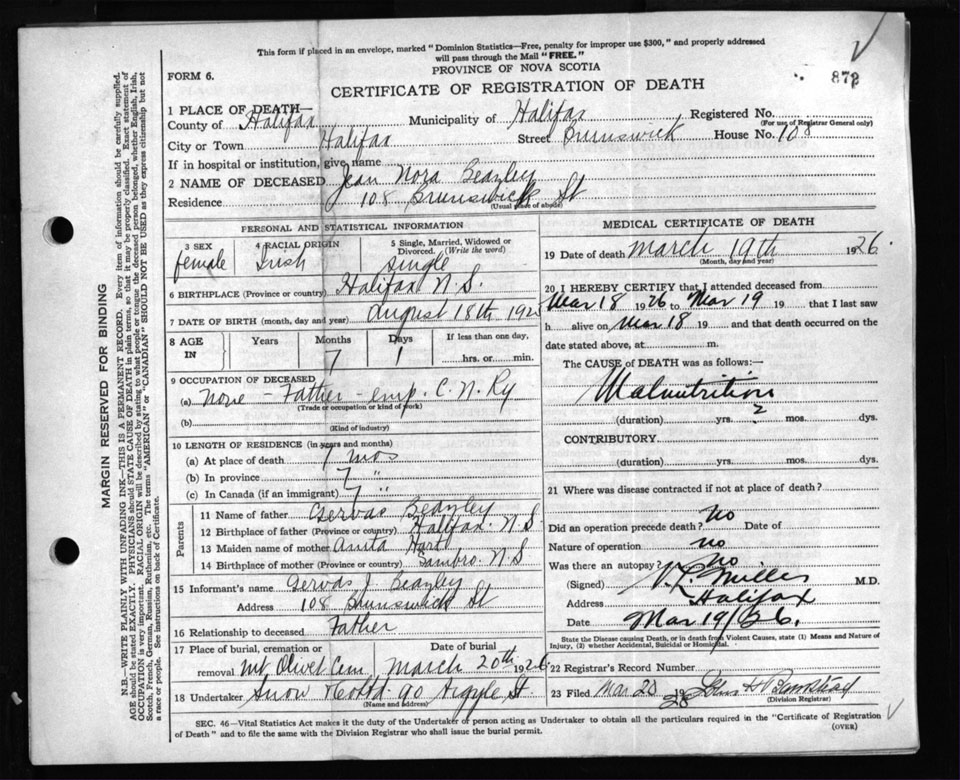 This form if placed in an envelope, marked "Dominion Statistics—Free, penalty for improper use $300," and properly addressed
will pass through the Mail "FREE."
PROVINCE OF NOVA SCOTIA
FORM 6.
CERTIFICATE OF REGISTRATION OF DEATH
872
1 PLACE OF DEATH—
County of Halifax Municipality of Halifax Registered No.
(For use of Registrar General only)
City or Town Halifax Street Brunswick House No. 108
If in hospital or institution, give name
2 NAME OF DECEASED Jean Nora Beazley
Residence 108 Brunswick St
(Usual place of abode)
PERSONAL AND STATISTICAL INFORMATION
3 SEX female
4 RACIAL ORIGIN Irish
5 Single, Married, Widowed or Divorced. (Write the word) single
6 BIRTHPLACE (Province or country) Halifax N.S.
7 DATE OF BIRTH (month, day and year) August 18th 1925
8 AGE IN Years Months Days If less than one day,
7 1 hrs. or min.
9 OCCUPATION OF DECEASED
(a) None – Father – emp. C. N. Ry
(Trade or occupation or kind of work)
(b)
(Kind of industry)
10 LENGTH OF RESIDENCE (in years and months)
(a) At place of death 7 mos
(b) In province 7 "
(c) In Canada (if an immigrant) 7 "
Parents
11 Name of father Gervas Beazley
12 Birthplace of father (Province or country) Halifax N.S
13 Maiden name of mother Anita Hart
14 Birthplace of mother (Province or country) Sambro N S
15 Informant's name Gervas J. Beazley
Address 108 Brunswick St
16 Relationship to deceased Father
17 Place of burial, cremation or removal Mt Olivet Cem
Date of burial March 20th 1926
18 Undertaker Snow 90 Argyle St.
(Name and address)
MEDICAL CERTIFICATE OF DEATH
19 Date of death March 19th 1926
(Month, day and year)
20 I HEREBY CERTIFY that I attended deceased from
Mar 18 1926 to Mar 19 19 that I last saw
h alive on Mar 18 19 and that death occurred on the
date stated above, at m.
The CAUSE of DEATH was as follows:—
Malnutrition
(duration) yrs. 2 mos. dys.
CONTRIBUTORY
(duration) yrs. mos. dys.
21 Where was disease contracted if not at place of death?
Did an operation precede death? No Date of
Nature of operation no
Was there an autopsy? No
(Signed) Miller M.D.
Address Halifax
Date Mar 19/26.
State the Disease causing Death, or in death from Violent Causes, state (1) Means and Nature of
Injury, (2) whether Accidental, Suicidal or Homicidal.
22 Registrar's Record Number
23 Filed Mar 23 19
(Division Registrar)
SEC. 46—Vital Statistics Act makes it the duty of the Undertaker or person acting as Undertaker to obtain all the particulars required in the "Certificate of Registration
of Death" and to file the same with the Division Registrar who shall issue the burial permit.
(OVER)
MARGIN RESERVED FOR BINDING
N.B.—WRITE PLAINLY WITH UNFADING INK—THIS IS A PERMANENT RECORD. Every item of information should be carefully supplied.
AGE should be stated EXACTLY. PHYSICIANS should STATE CAUSE OF DEATH in plain terms, so that it may be properly classified. Exact statement of
OCCUPATION is very important. RACIAL ORIGIN will be described by stating to what people or tongue the deceased person belonged, whether English, Irish,
Scotch, French, German, Russian, Ruthenian, etc. The terms "AMERICAN" or "CANADIAN" SHOULD NOT BE USED as they express citizenship but not
a race or people. See instructions on back of Certificate.